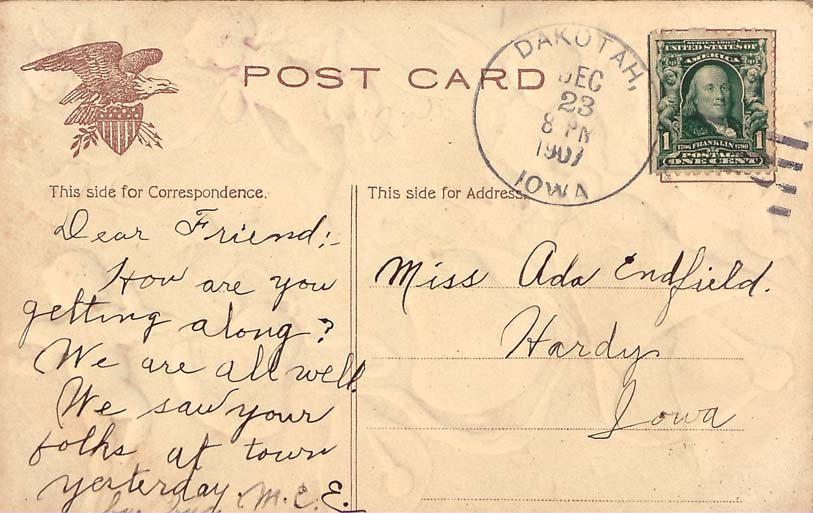 POST CARD
DAKOTAH,
DEC
23
8 PM
1907
IOWA
SERIES 1902
UNITED STATES OF
AMERICA
1 1
1706 FRANKLIN 1790
POSTAGE
ONE CENT
This side for Correspondence.
Dear Friend:-
How are you
getting along?
We are all well.
We saw your
folks at town
yesterday
M.E.E.
This side for Address.
Miss Ada Endfield.
Hardy
Iowa